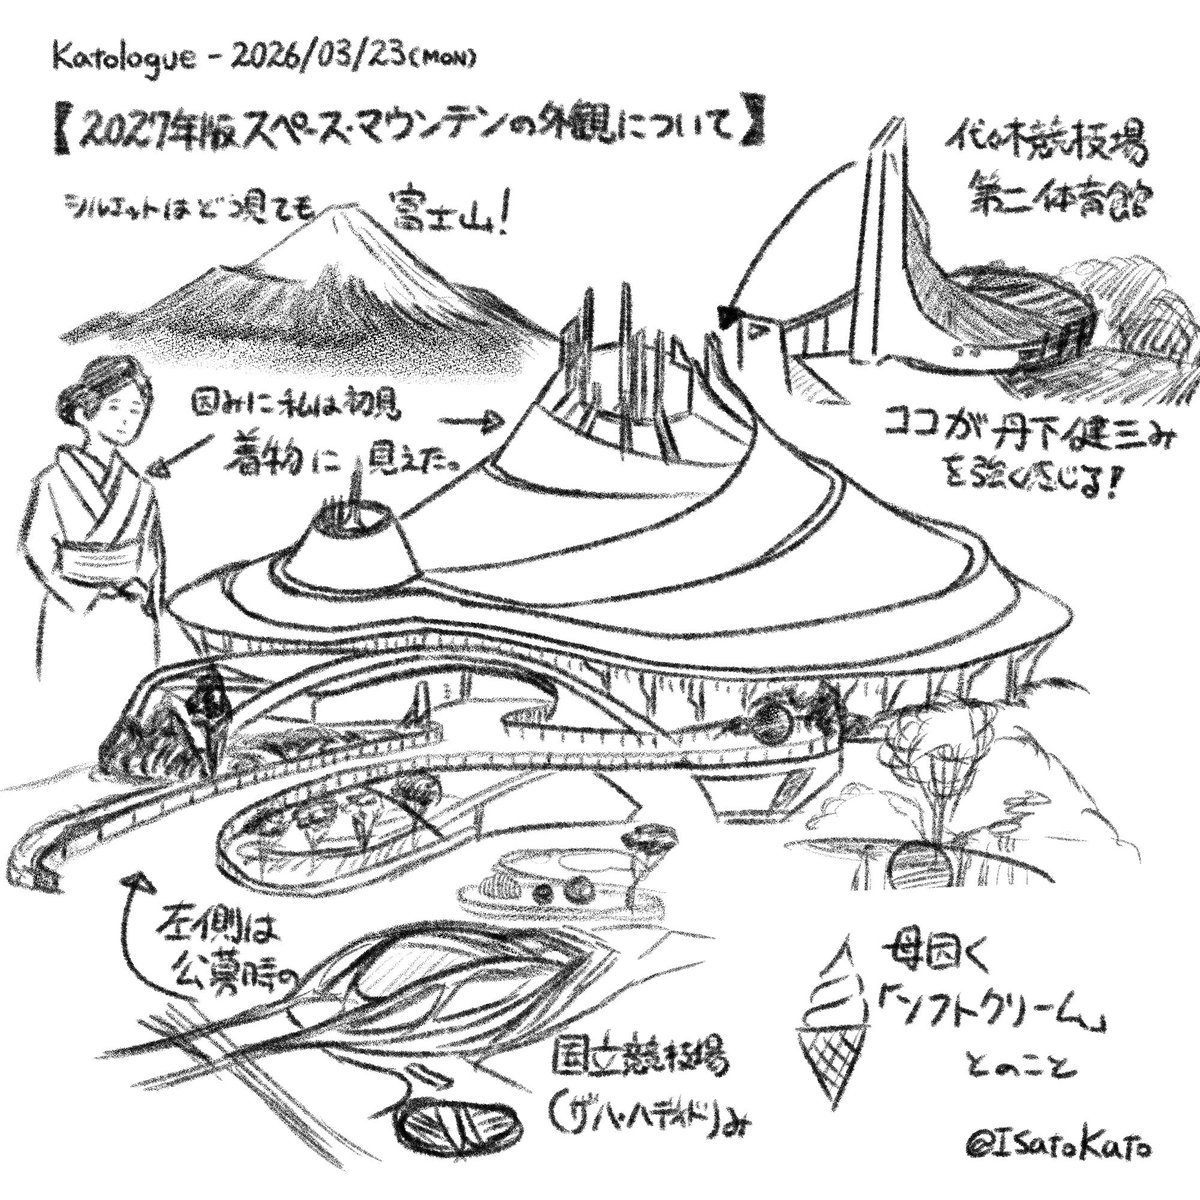 Katologue - 2026/03/23(MON)
【2027年版スペース・マウンテンの外観について】
シルエットはどう見ても 富士山!
代々木競技場
第二体育館
因みに私は初見
着物に見えた。
ココが丹下健三み
を強く感じる!
左側は
公募時の
国立競技場
(ザハ・ハディド)み
母因く
「ソフトクリーム」
とのこと
@ISATOKATO